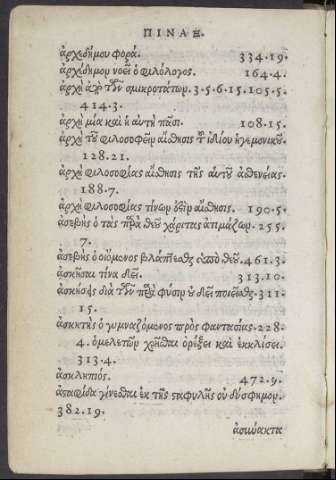 ΠΙΝΑΞ.
ἀρχιδήμου φορά. 334.19.
ἀρχίδημον νοεῖ ὁ φιλόλογος. 164.4.
ἀρχὴ ἀπὸ τῶν σμικροτάτων. 3.5.6.15.105.5.
414.3.
ἀρχὴ μία καὶ ἡ αὐτὴ πᾶσι. 108.15.
ἀρχὴ τοῦ φιλοσοφεῖν αἴσθησις τοῦ ἰδίου ἡγεμονικοῦ.
128.21.
ἀρχὴ φιλοσοφίας αἴσθησις τῆς αὑτοῦ ἀσθενείας.
188.7.
ἀρχὴ φιλοσοφίας τίνων ἐστὶν αἴσθησις. 190.5.
ἀσεβὴς ὁ τὰς παρὰ θεοῦ χάριτας ἀτιμάζων. 255.
7.
ἀσεβὴς ὁ οἰόμενος βλάπτεσθαι ὑπὸ θεοῦ. 461.3.
ἀσκῆσαι τίνα δεῖ. 313.10.
ἀσκήσεις διὰ τῶν παρὰ φύσιν οὐ δεῖ ποιεῖσθαι. 311.
15.
ἀσκητὴς ὁ γυμναζόμενος πρὸς φαντασίας. 228.
4. ὁ μελετῶν χρῆσθαι ὀρέξει καὶ ἐκκλίσει.
313.4.
ἀσκληπιός. 472.9.
ἀσταφίδα γίνεσθαι ἐκ τῆς σταφυλῆς οὐ δύσφημον.
382.19.